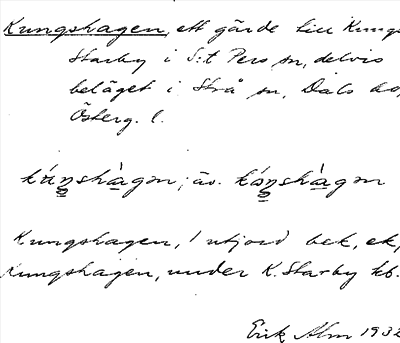 Kungshagen, ett gärde till Kungs
Starby i S:t Pers sn, delvis
beläget i Strå sn, Dals hd,
Österg. l.
äv.
Kungshagen, 1 utjord bek, ek,
Kungshagen, under K. Starby kb.
Erik Alm 1932